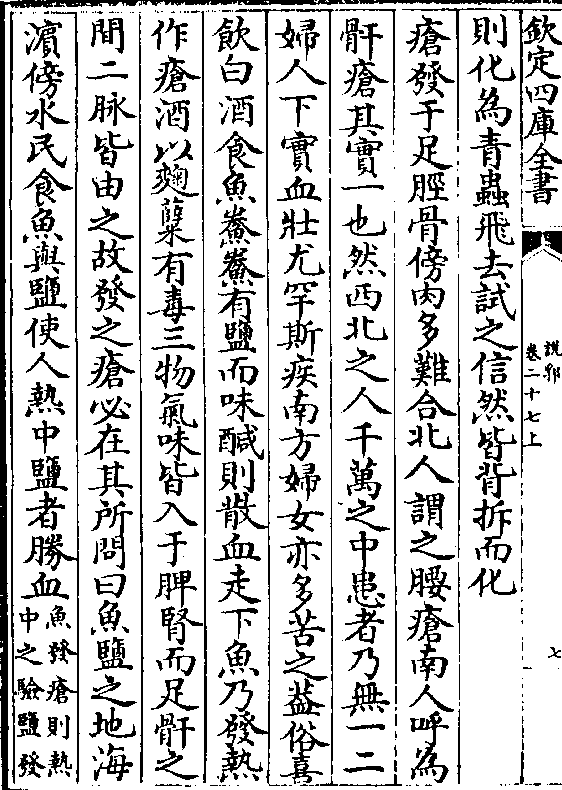 欽定四庫全書
說郛
卷二十七上
七
則化為青蟲飛去試之信然皆背拆而化
瘡發于足脛骨傍肉多難合北人謂之臁瘡南人呼為
骭瘡其實一也然西北之人千萬之中患者乃無一二
婦人下實血壯尤罕斯疾南方婦女亦多苦之葢俗喜
飲白酒食魚鯗鯗有鹽而味醎則散血走下魚乃發熱
作瘡酒以麴糵有毒三物氣味皆入于脾腎而足骭之
間二脉皆由之故發之瘡必在其所問曰魚鹽之地海
濵傍水民食魚與鹽使人熱中鹽者勝血魚發瘡則熱
中之驗鹽發